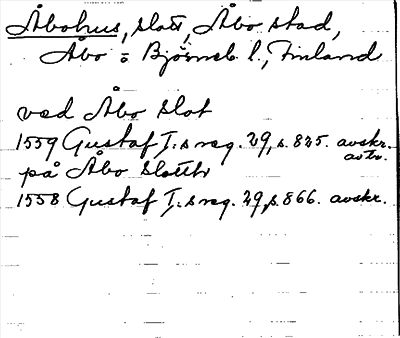 Åbohus, slott, Åbo stad,
Åbo o Björneb. l., Finland
ved Åbo slot
1559 Gustaf I:s reg. 29, s. 825. avskr.
avtr.
på Åbo slotth
1558 Gustaf I:s reg. 29, s. 866. avskr.